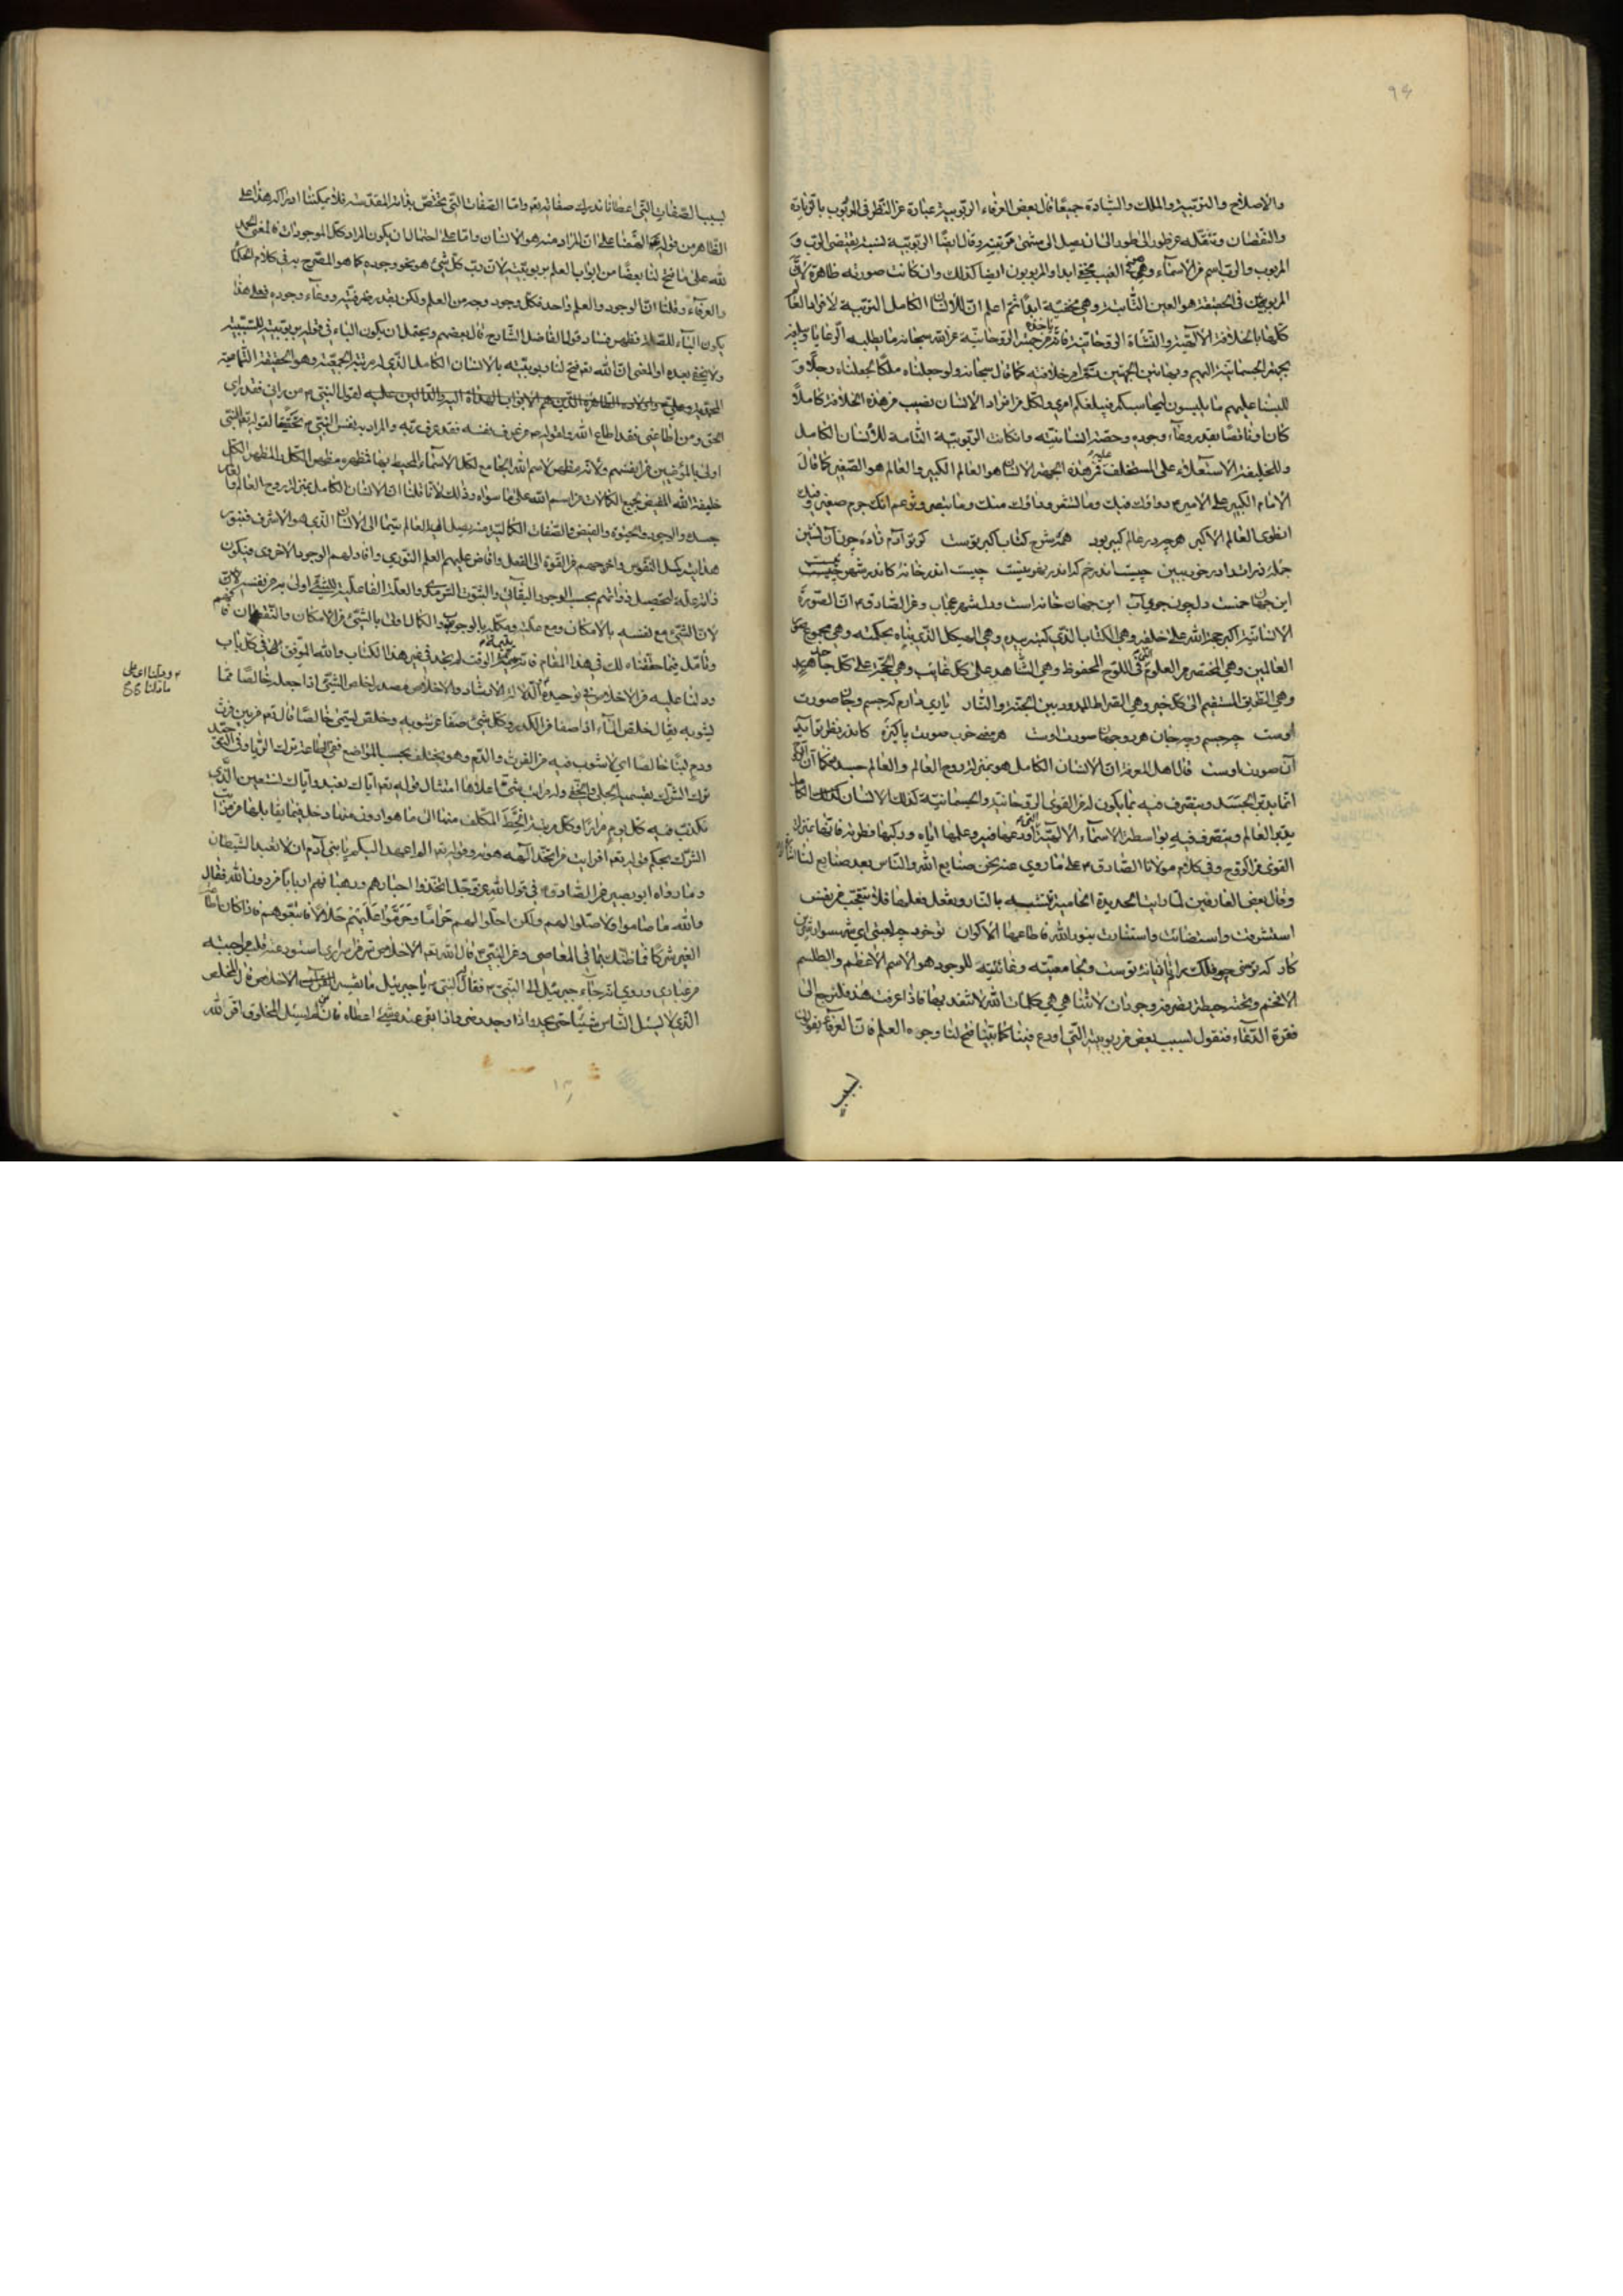 والاصلاح والتربية والملك والسيادة جميعًا قال بعض العرفاء الربوبية عبارة عن النظر في المربوب
والنقصان وتنقله عن طور الى طور الى ان يصل الى منتهى مرتبته وقال ايضًا الربوبية نسبة يقتضى الرب و
المربوب والرب اسم من الاسماء وهى الغيب مخفى ابدا والمربوبون ايضا كذلك وان كانت صورته ظاهرة لان
المربوب في الحقيقة هو العين الثابتة وهي مخفية ابدًا ثم اعلم ان للانسان الكامل التربية لافراد العالم
كلها بالخلافة الالهية والنشأة الروحانية فانه من جهته الروحانية عن الله سبحانه ما يطلبه الرعايا ويبلغ
بجهته الجسمانية اليهم وبهاتين الجهتين يتم امر خلافته كما قال سبحانه ولو جعلناه ملكًا لجعلناه رجلًا و
للبسنا عليهم ما يلبسون ليجانسكم فيبلغكم امرى ولكل من افراد الانسان نصيب من هذه الخلافة كاملًا
كان او ناقصًا بقدر وعاء وجوده وحصة انسانيته وان كانت الربوبية التامة للانسان الكامل
وللخليفة الاستعلاء على المستخلف عليه فمن هذه الجهة الانسان هو العالم الكبير والعالم هو الصغير كما قال
الامام الكبير على الامير دوائك فيك وما تشعر وداؤك منك وما تبصر وتزعم انك جرم صغير وفيك
انطوى العالم الاكبر هر چه در عالم كبير بود همه شرح كتاب اكبر توست كر تو آدم زاده چون آن نشين
جمله ذرات را در خود ببين چيست اندر خم كه اندر نهر نيست چيست اندر خانه كاندر شهر نيست
اين جهان خمست ودل چون جوى آب اين جهان خانه است ودل شهر عجاب وعن الصادق ان الصورة
الانسانية اكبر حجة الله على خلقه وهي الكتاب الذي كتبه بيده وهي الهيكل الذي بناه بحكمته وهي مجموع صور
العالمين وهي المختصر من العلوم في اللوح المحفوظ وهي الشاهد على كل غائب وهي الحجة على كل جاحد
وهي الطريق المستقيم الى كل خير وهي الصراط الممدود بين الجنة والنار يارى دارم كه جسم وجان صورت
اوست چه جسم وچه جان هر دو جهان صورت اوست هر معنى خوب صورت پاكيزه كاندر نظر تو آيد
آن صورت اوست قال اهل المعرفة ان الانسان الكامل هو بمنزلة روح العالم والعالم جسده فكما ان الروح
انما يدبر الجسد ويتصرف فيه بما يكون له من القوى الروحانية والجسمانية كذلك الانسان الكامل
يدبر العالم ويتصرف فيه بواسطة الاسماء الالهية التي اودعها فيه وعلمها اياه وركبها فطرته فانها بمنزلة
القوى من الروح وفي كلام مولانا الصادق على ما روي عنه نحن صنايع الله والناس بعد صنايع لنا
وقال بعض العارفين لما رايت الحديدة الحامية تتشبه بالنار وتفعل فعلها فلا تتعجب من نفس
استشرقت واستضائت واستنارت بنور الله فاطاعها الاكوان تو خود چه لعبتى اى شهسوار شيرين
كار كه توسنى چو فلك رام تازيانه توست وبجامعيته وغائيته للوجود هو الاسم الاعظم والطلسم
الافخم وتحت حيطة تصرفه وجودات لا تتناهى هي كلمات الله لا تنفد بها فاذا عرفت هذا فلنرجع الى
فقرة الدعاء فنقول لسبب بعض من ربوبيته التي اودع فينا كما بينا فتح لنا وجوه العلم فان العرفاء يقولون
لسبب الصفات التي اعطانا ندرك صفاته تعالى واما الصفات التي تختص بذاته المقدسة فلا يمكننا ادراكه هذا على
الظاهر من قوله الضفا على ان المراد منه هو الانسان واما على احتمال ان يكون المراد كل الموجودات فالمعنى الحمد
لله على ما فتح لنا بعضًا من ابواب العلم بربوبيته لان رب كل شئ هو نحو وجوده كما هو المصرح به في كلام الحكماء
والعرفاء وقلنا ان الوجود والعلم واحد فكل وجود وجه من العلم ولكن بقدر معرفته ووعاء وجوده فعلى هذا
يكون الباء للصلة فظهر فساد قول الفاضل الشارح قال بعضهم ويحتمل ان يكون الباء في قوله بربوبيته للسببية
ولا يخفى بعده او المعنى ان الله تعالى فتح لنا ربوبيته بالانسان الكامل الذي له مرتبة الجمعية وهو الحقيقة
المحمدية وعلي واولاده الطاهرة الذين هم الابواب الهداة اليه والدالين عليه لقول النبي من راني فقد راى
الحق ومن اطاعني فقد اطاع الله ولقوله من عرف نفسه فقد عرف ربه والمراد به نفس النبي تحقيقًا لقوله تعالى النبي
اولى بالمؤمنين من انفسهم ولانه مظهر لاسم الله الجامع لكل الاسماء المحيط بها فظهره مظهر الكل بالمظهر الكل
خليفة الله المفيض بجميع الكمالات من اسم الله على ما سواه وذلك لانا قلنا ان الانسان الكامل بمنزلة روح العالم والعالم
جسده والوجود والحيوة والفيض والصفات الكمالية منه يصل الى العالم سيما الى الانسان الذي هو الاشرف فبنور
هدايته يكمل النفوس واخرجهم من القوة الى الفعل وافاض عليهم العلم النوري وافادهم الوجود الاخروي فيكون
ذاته علة لتحصيل ذواتهم بحسب الوجود البقائي والثبوت السرمدي والعلة الفاعلية للشئ اولى به من نفسه لان
لان الشئ مع نفسه بالامكان ومع علته ومكمله بالوجوب والكمال اولى بالشئ من الامكان والنقصان فافهم
وتأمل فيما حققناه لك في هذا المقام فانه يتيمة الوقت لم يجد في غير هذا الكتاب والله الموفق للهدى في كل باب
ودلنا عليه من الاخلاص في توحيده الدلالة الارشاد والاخلاص مصدر اخلص الشئ اذا جعله خالصًا مما
يشوبه يقال خلص الماء اذا صفا من الكدر وكل شئ صفا عن شوبه وخلص ليسمى خالصًا قال تعالى من بين فرث
ودم لبنًا خالصا اي لا شوب فيه من الفرث والدم وهو يختلف بحسب المواضع ففي الطاعة ترك الريا وفي التوحيد
ترك الشرك بقسميه الجلي والخفي وله مراتب شتى اعلاها امتثال قوله تعالى اياك نعبد واياك نستعين الذي
تكذب فيه كل يوم مرارًا وكل مرتبة انحط المكلف منها الى ما هو ادون منها دخل فيما يقابلها من مراتب
الشرك بحكم قوله تعالى افرايت من اتخذ الهه هويه وقوله تعالى الم اعهد اليكم يا بني آدم ان لا تعبدوا الشيطان
وما رواه ابو بصير عن الصادق في قول الله عز وجل اتخذوا احبارهم ورهبانهم اربابا من دون الله فقال
والله ما صاموا ولا صلوا لهم ولكن احلوا لهم حرامًا وحرموا عليهم حلالًا فاتبعوهم فاذا كان اطاعة
الغير شركًا فما ظنك بما في المعاصي وعن النبي قال الله تعالى الاخلاص سر من اسراري استودعته قلب من احببته
من عبادي وروي انه جاء جبرئيل الى النبي فقال النبي يا جبرئيل ما تفسير الاخلاص قال المخلص
الذي لا يسئل الناس شيئًا حتى يجد واذا وجد رضى واذا بقى عنده شئ اعطاه فان لم يسئل المخلوق اقر لله